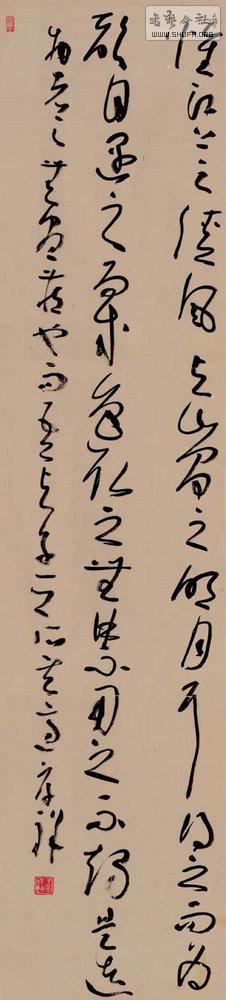 書藝公社
WWW.SHUFA.ORG
惟江上之清風与山間之明月耳得之而為
聲目遇之而成色取之無禁用之不竭是造
物者之無盡藏也而吾与子之所共適